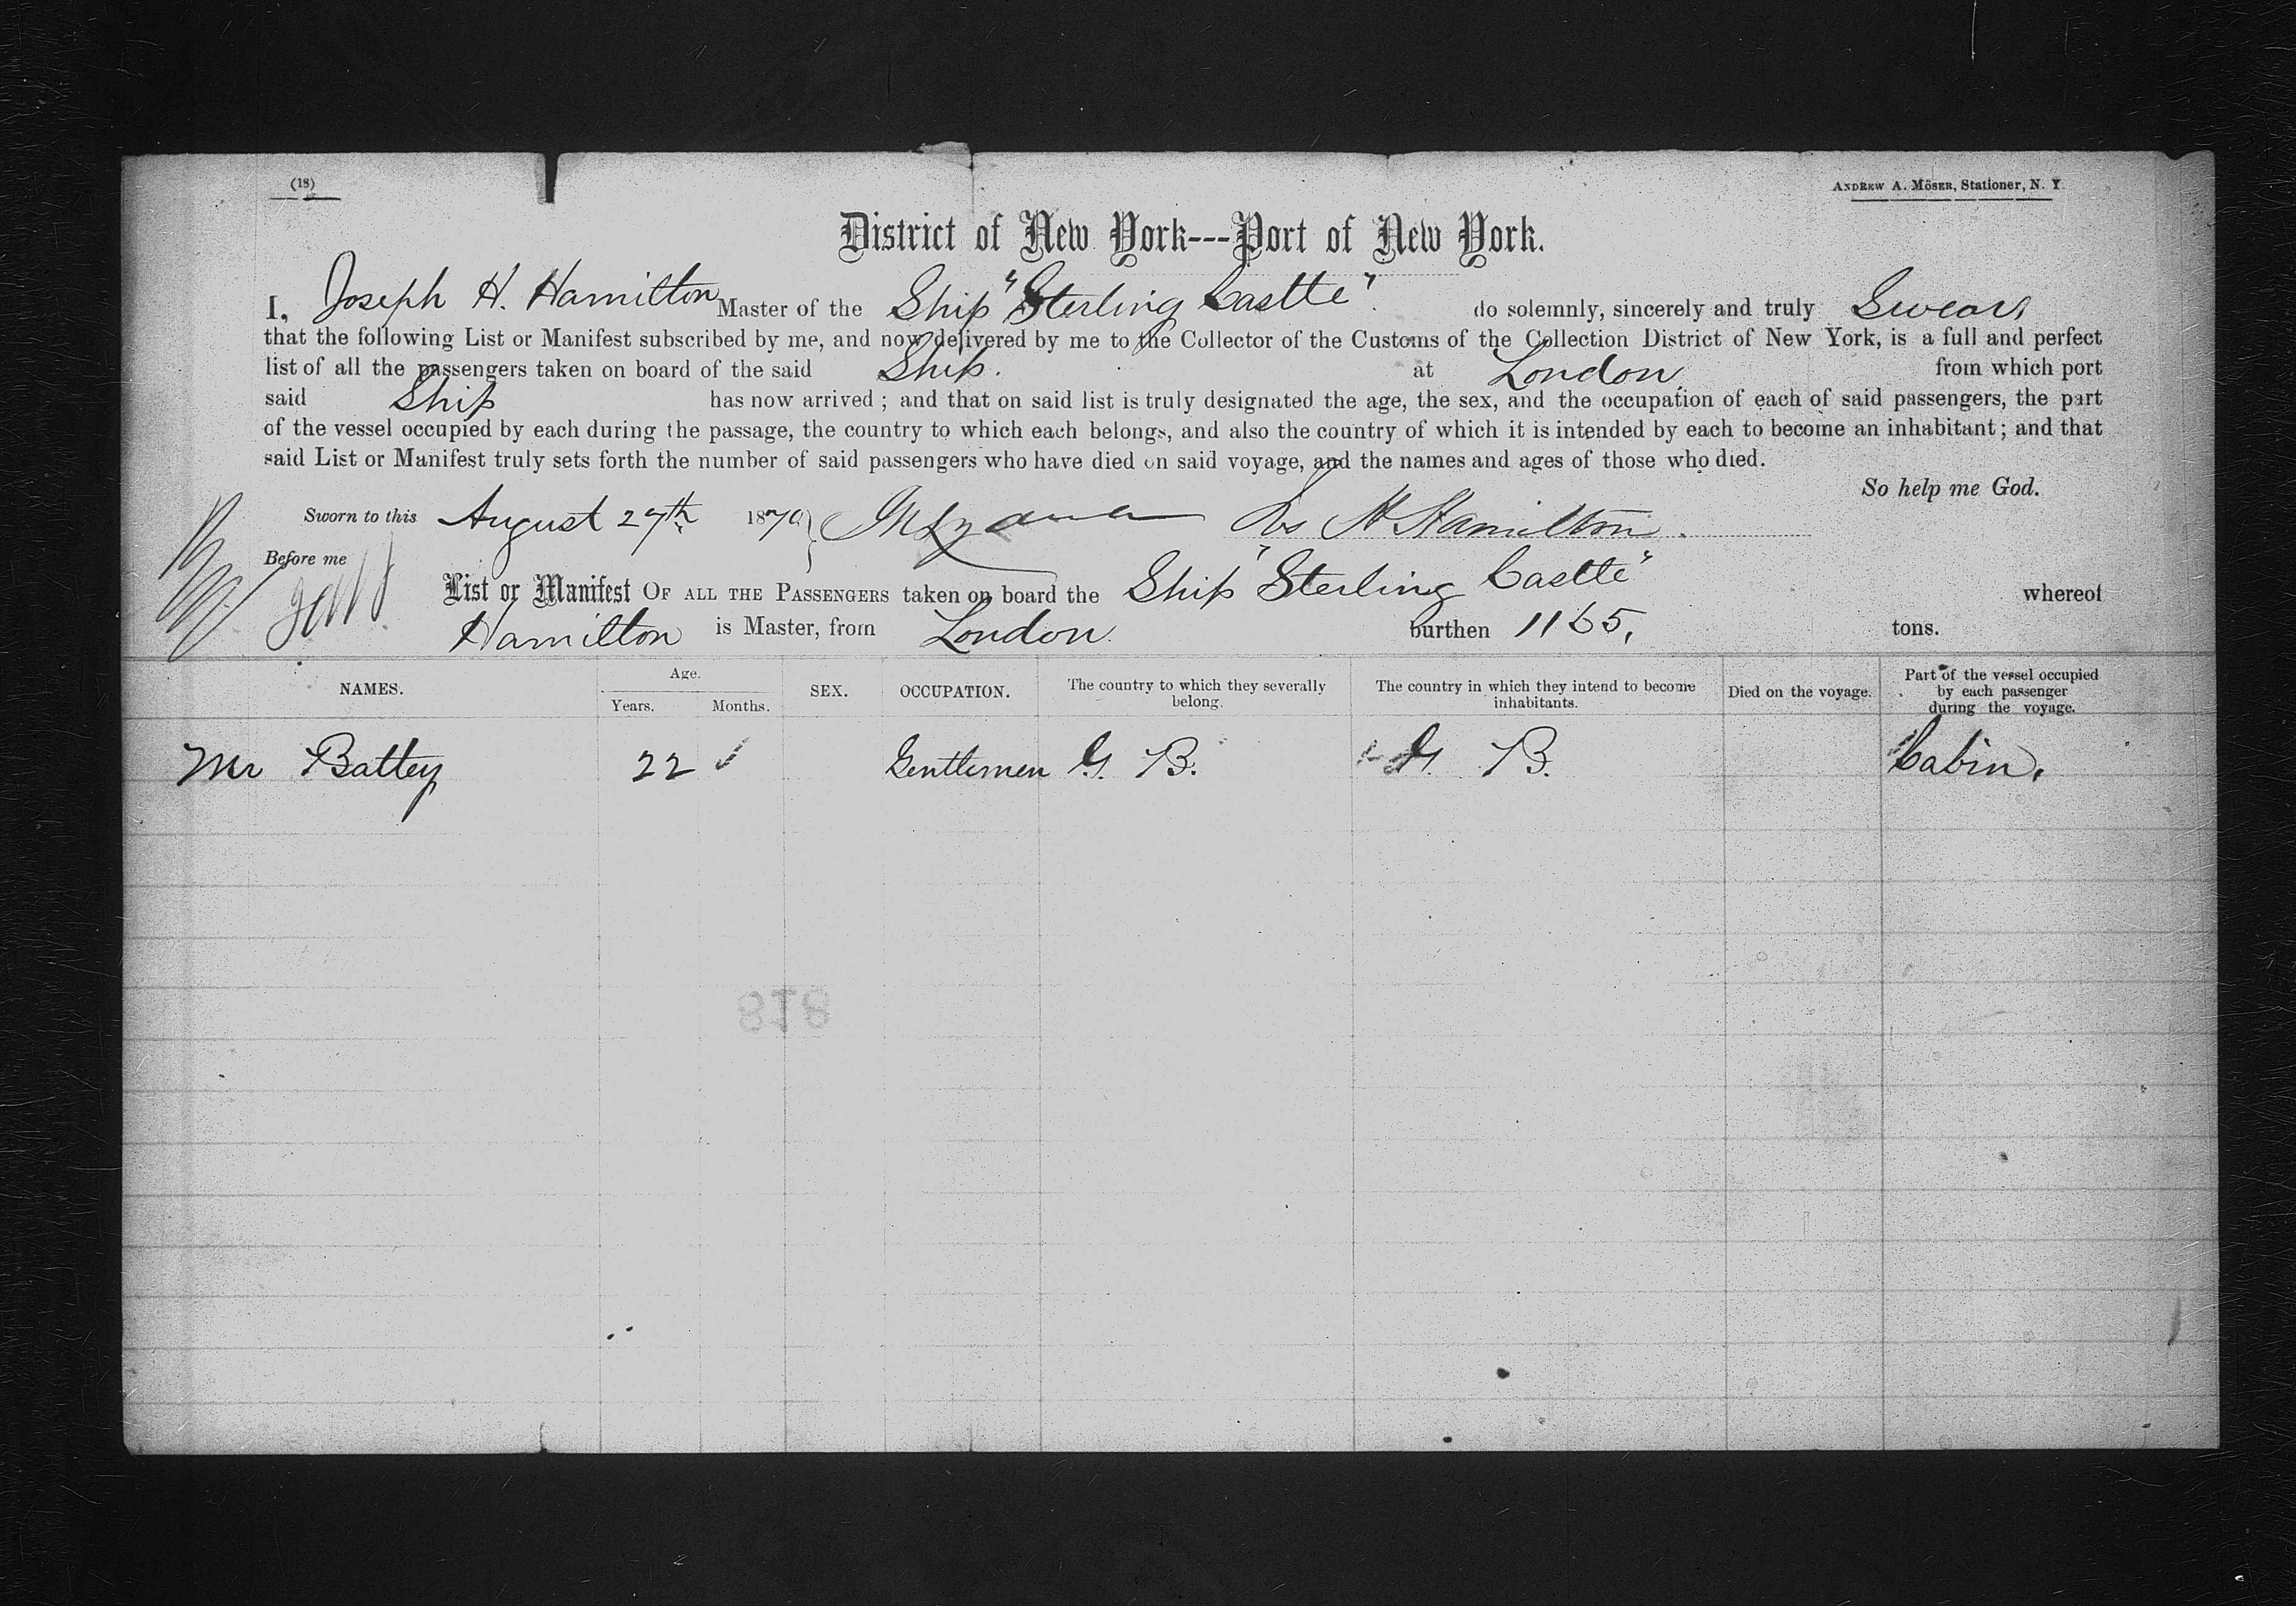 (18)
ANDREW A. MÖSER, Stationer, N. Y.
District of New York---Port of New York.
I, Joseph H. Hamilton Master of the Ship "Sterling Castle" do solemnly, sincerely and truly Swear
that the following List or Manifest subscribed by me, and now delivered by me to the Collector of the Customs of the Collection District of New York, is a full and perfect
list of all the passengers taken on board of the said Ship. at London. from which port
said Ship has now arrived; and that on said list is truly designated the age, the sex, and the occupation of each of said passengers, the part
of the vessel occupied by each during the passage, the country to which each belongs, and also the country of which it is intended by each to become an inhabitant; and that
said List or Manifest truly sets forth the number of said passengers who have died on said voyage, and the names and ages of those who died.
So help me God.
Sworn to this August 27th 1870 Jos H Hamilton.
Before me
List or Manifest OF ALL THE PASSENGERS taken on board the Ship "Sterling Castle" whereof
Hamilton is Master, from London. burthen 1165, tons.
NAMES. Age. Years. Months. SEX. OCCUPATION. The country to which they severally belong. The country in which they intend to become inhabitants. Died on the voyage. Part of the vessel occupied by each passenger during the voyage.
Mr Battey 22 Gentlemen G. B. G. B. Cabin.
818